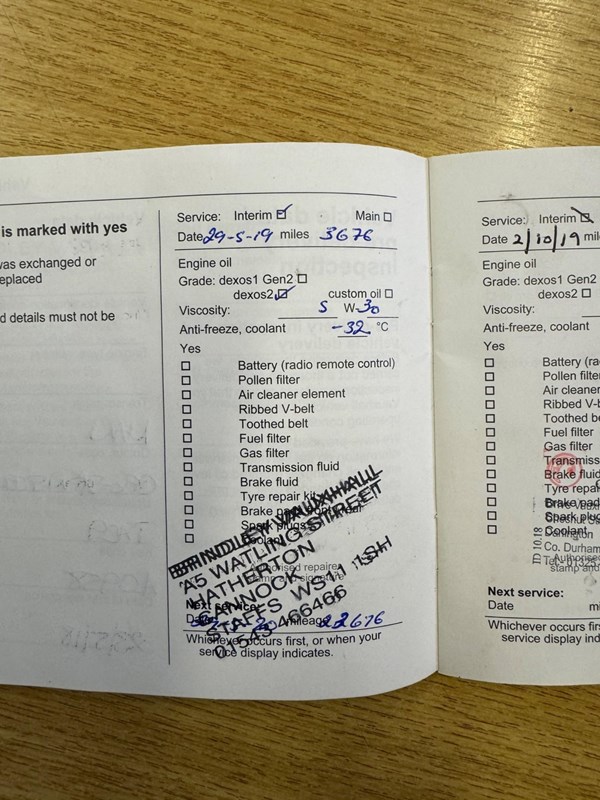 is marked with yes
was exchanged or
eplaced
d details must not be
Service: Interim ☑ Main ☐
Date 29-5-19 miles 3676
Engine oil
Grade: dexos1 Gen2 ☐
dexos2 ☑ custom oil ☐
Viscosity: 5 W-30
Anti-freeze, coolant -32 °C
Yes
☐ Battery (radio remote control)
☐ Pollen filter
☐ Air cleaner element
☐ Ribbed V-belt
☐ Toothed belt
☐ Fuel filter
☐ Gas filter
☐ Transmission fluid
☐ Brake fluid
☐ Tyre repair kit
☐ Brake
☐ Spark plugs
☐ Coolant
BRINDLEY VAUXHALL
A5 WATLING STREET
HATHERTON
CANNOCK
STAFFS WS11 1SH
01543 466466
Authorised repairer
stamp and signature
Next service:
Date mileage 22676
Whichever occurs first, or when your
service display indicates.
Service: Interim ☑
Date 2/10/19 mil
Engine oil
Grade: dexos1
dexos2 ☐
Viscosity:
Anti-freeze, coolant
Yes
☐ Battery (ra
☐ Pollen filter
☐ Air cleaner
☐ Ribbed V-b
☐ Toothed be
☐ Fuel filter
☐ Gas filter
☐ Transmiss
☐ Brake fluid
☐ Tyre repai
☐ Brake pad
☐ Spark plug
☐ Coolant
Darlington
Co. Durham
ID 10.18
Authorise
stamp and
Next service:
Date mi
Whichever occurs firs
service display ind